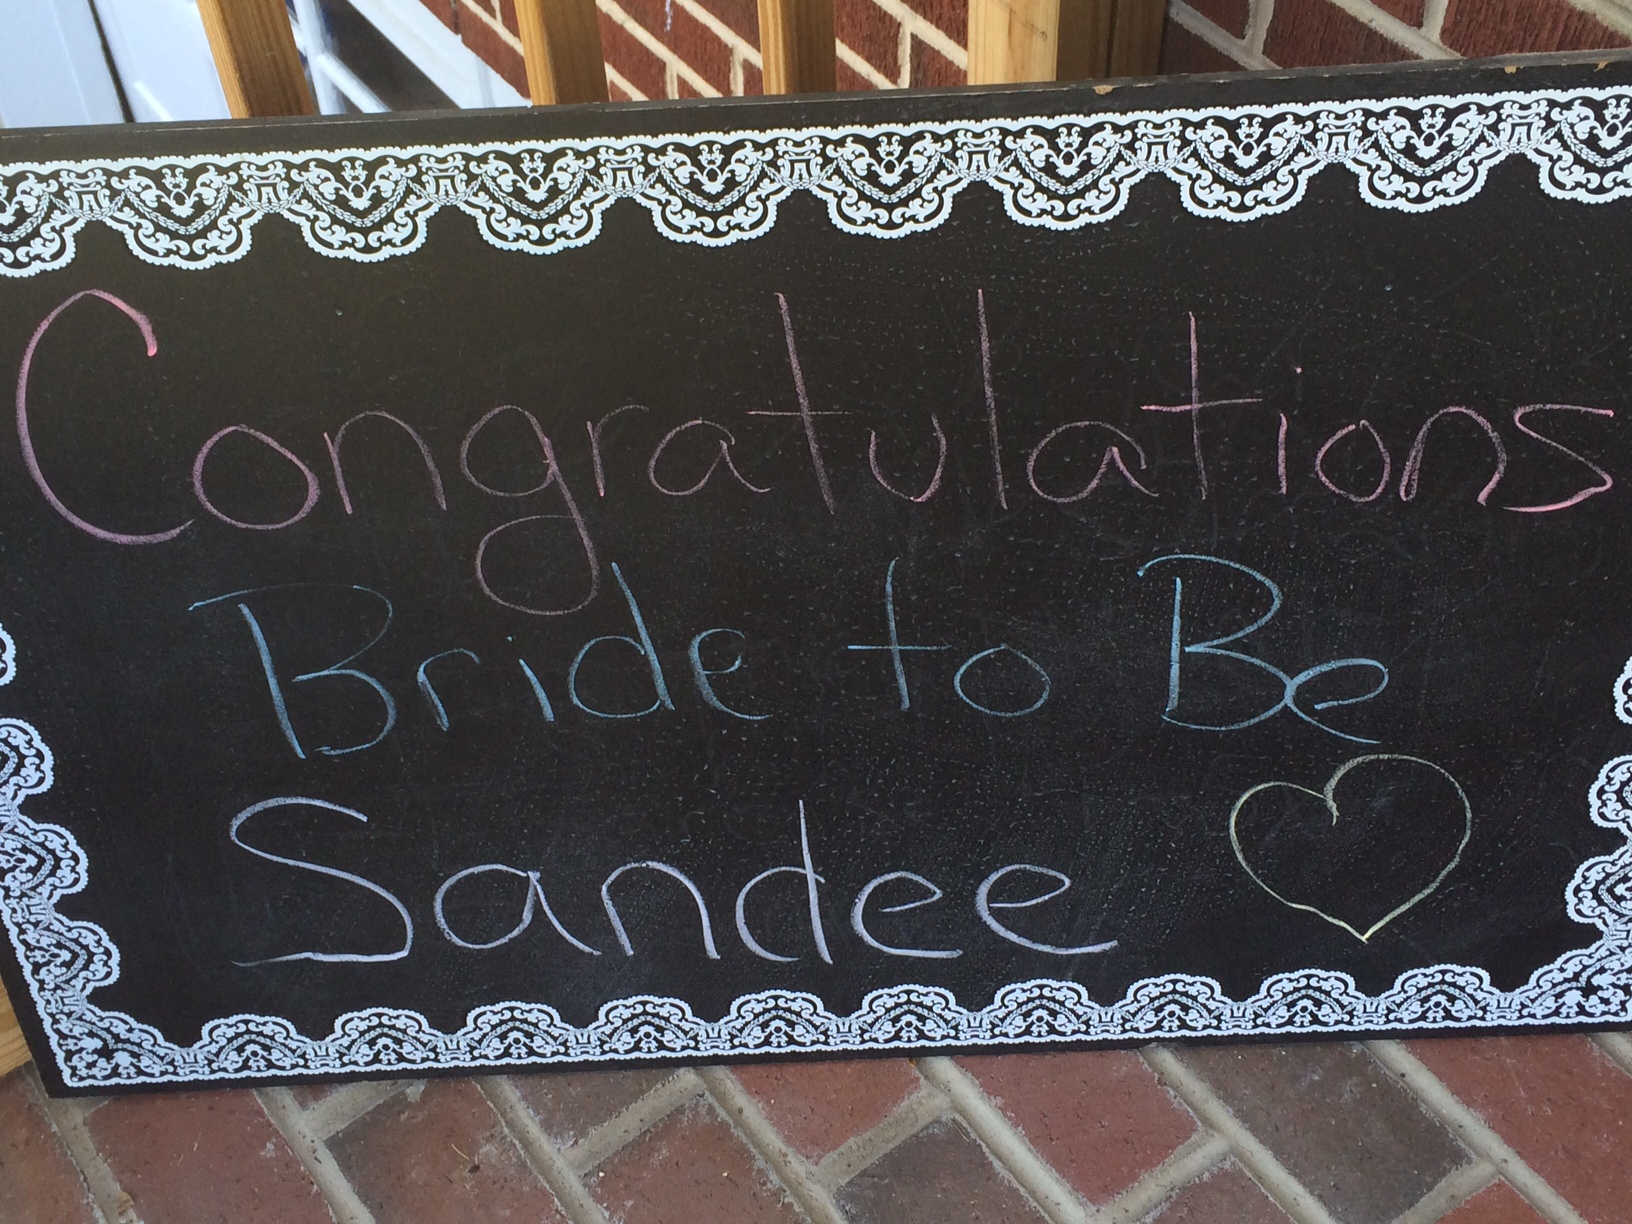 Congratulations
Bride to Be
Sandee